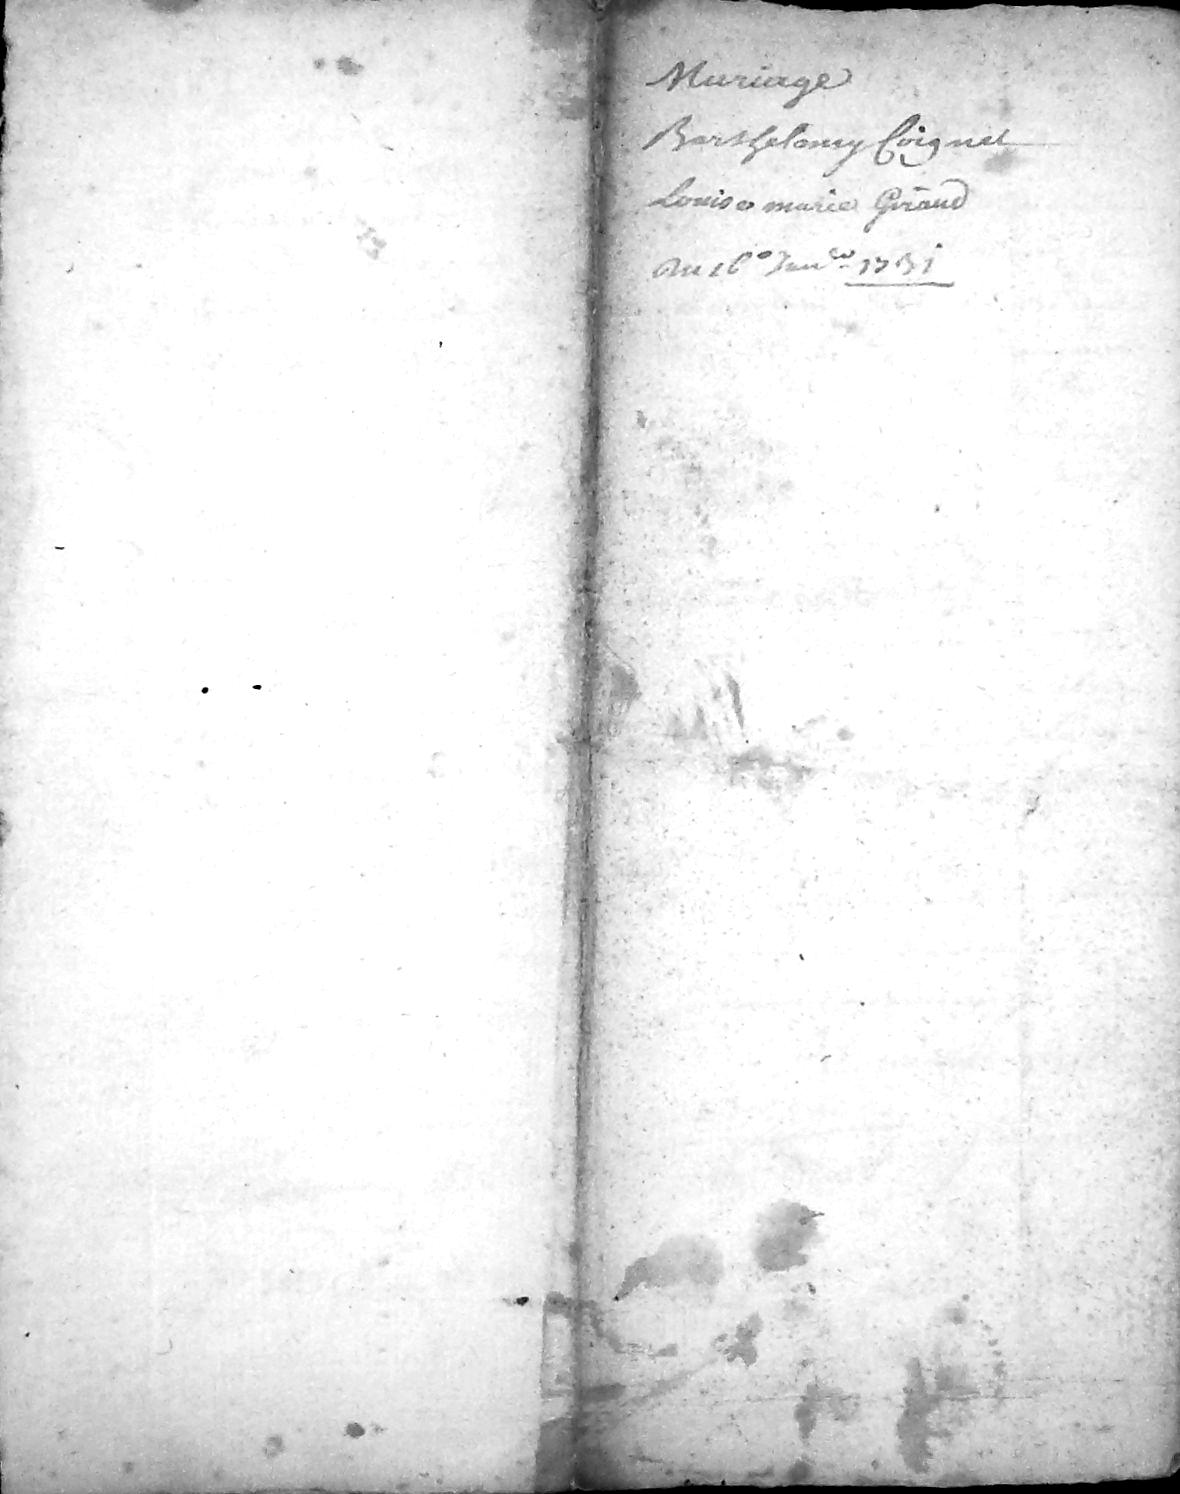 Mariage
Barthelemy Coignet
Louise marie Giraud
Du 16º Janer 1751